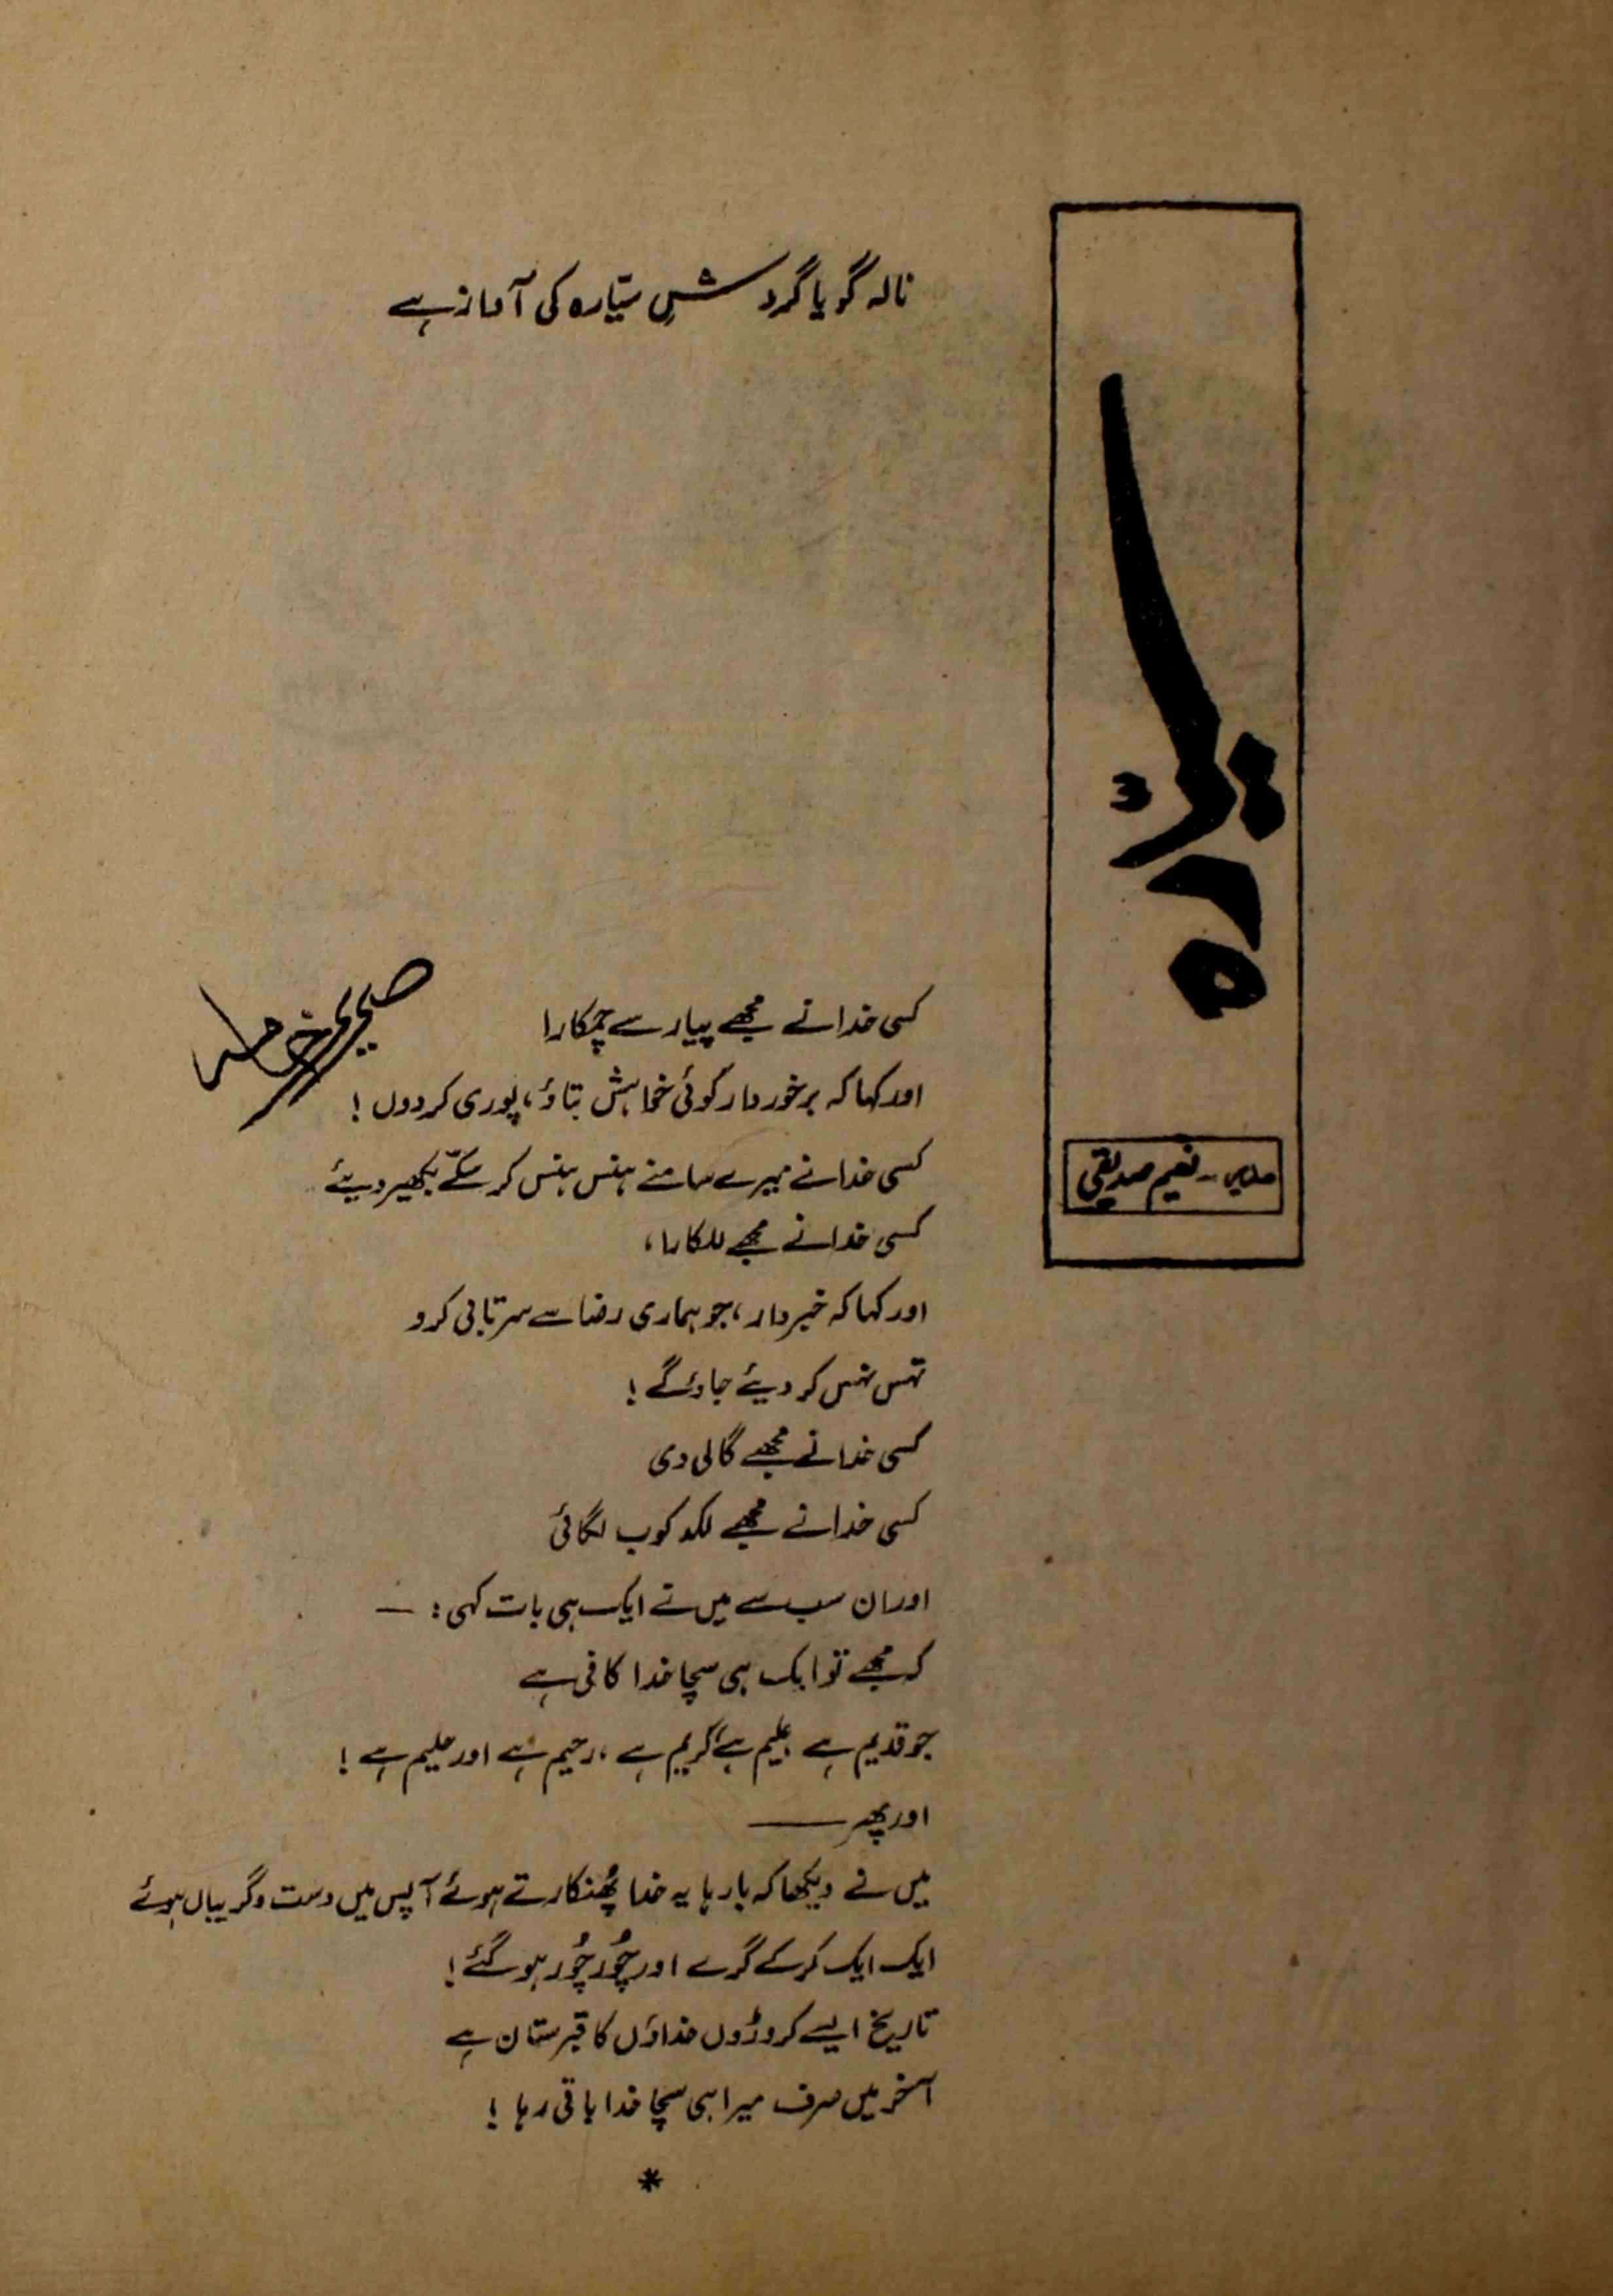 نالہ گویا گردشِ سیّارہ کی آواز ہے
سیّارہ
مدیر۔ نعیم صدیقی
صریرِ خامہ
کسی خدا نے مجھے پیار سے چمکارا
اور کہا کہ برخوردار کوئی خواہش بتاؤ، پوری کر دوں!
کسی خدا نے میرے سامنے ہنس ہنس کر سکّے بکھیر دیئے
کسی خدا نے مجھے للکارا،
اور کہا کہ خبردار، جو ہماری رضا سے سرتابی کرو
تہس نہس کر دیئے جاؤ گے!
کسی خدا نے مجھے گالی دی
کسی خدا نے مجھے لکد کوب لگائی
اور ان سب سے میں نے ایک ہی بات کہی: —
کہ مجھے تو ایک ہی سچا خدا کافی ہے
جو قدیم ہے، علیم ہے، کریم ہے، رحیم ہے اور حلیم ہے!
اور پھر ——
میں نے دیکھا کہ بارہا یہ خدا پُھنکارتے ہوئے آپس میں دست و گریباں ہوئے
ایک ایک کر کے گرے اور چُور چُور ہو گئے!
تاریخ ایسے کروڑوں خداؤں کا قبرستان ہے
آخر میں صرف میرا ہی سچا خدا باقی رہا!
*